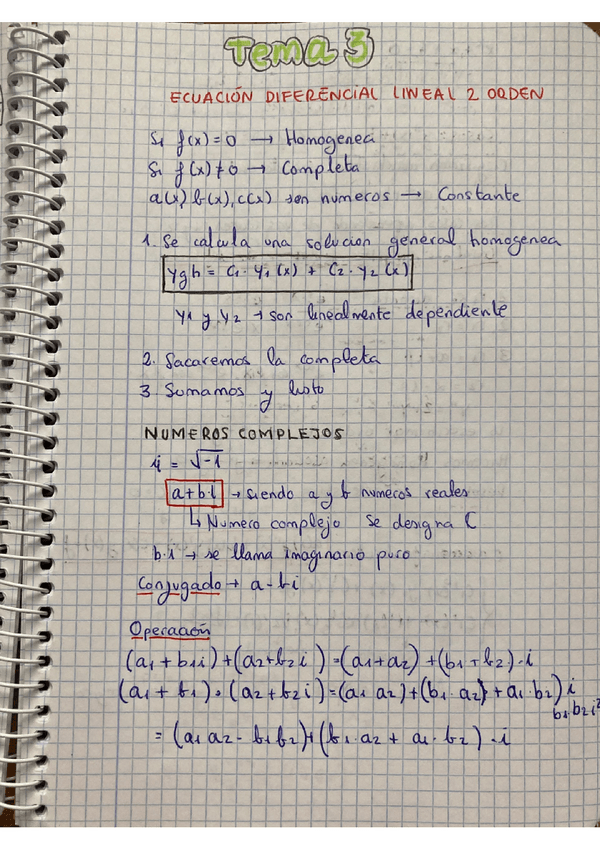 Tema 3
ECUACIÓN DIFERENCIAL LINEAL 2 ORDEN
Si f(x) = 0 → Homogenea
Si f(x) ≠ 0 → Completa
a(x), b(x), c(x) son numeros → Constante
1. Se calcula una solucion general homogenea
ygh = C1 · y1 (x) + C2 · y2 (x)
y1 y y2 → son linealmente dependiente
2. Sacaremos la completa
3. Sumamos y listo
NUMEROS COMPLEJOS
i = √-1
a+b·i → siendo a y b numeros reales
↳ Numero complejo Se designa C
b·i → se llama imaginario puro
Conjugado → a - bi
Operación
(a1 + b1i) + (a2 + b2 i) = (a1 + a2) + (b1 + b2) · i
(a1 + b1) · (a2 + b2 i) = (a1 a2) + (b1 · a2) + a1 · b2) i
b1 · b2 i²
= (a1 a2 - b1 b2) + (b1 · a2 + a1 · b2) · i